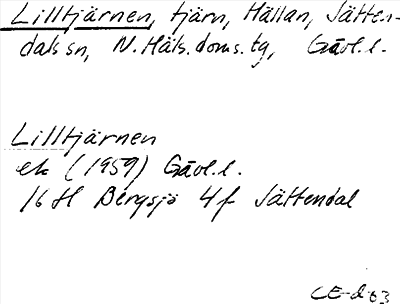 Lilltjärnen, tjärn, Hällan, Jätten-
dals sn, N. Häls. doms. tg, Gävl. l.
Lilltjärnen
ek (1959) Gävl. l.
16 H Bergsjö 4f Jättendal
CE-d-63